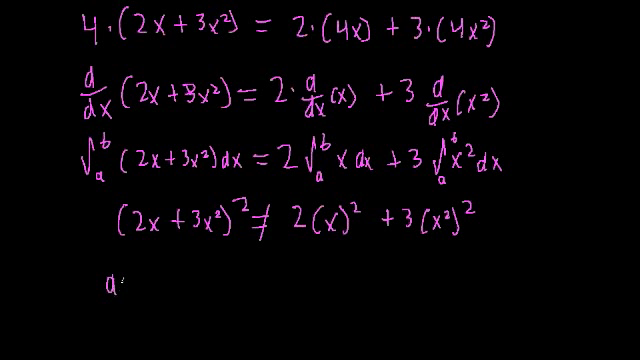 4·(2x + 3x²) = 2·(4x) + 3·(4x²)
d/dx (2x + 3x²) = 2· d/dx (x) + 3 d/dx (x²)
∫ₐᵇ (2x + 3x²) dx = 2 ∫ₐᵇ x dx + 3 ∫ₐᵇ x² dx
(2x + 3x²)² ≠ 2(x)² + 3(x²)²
a